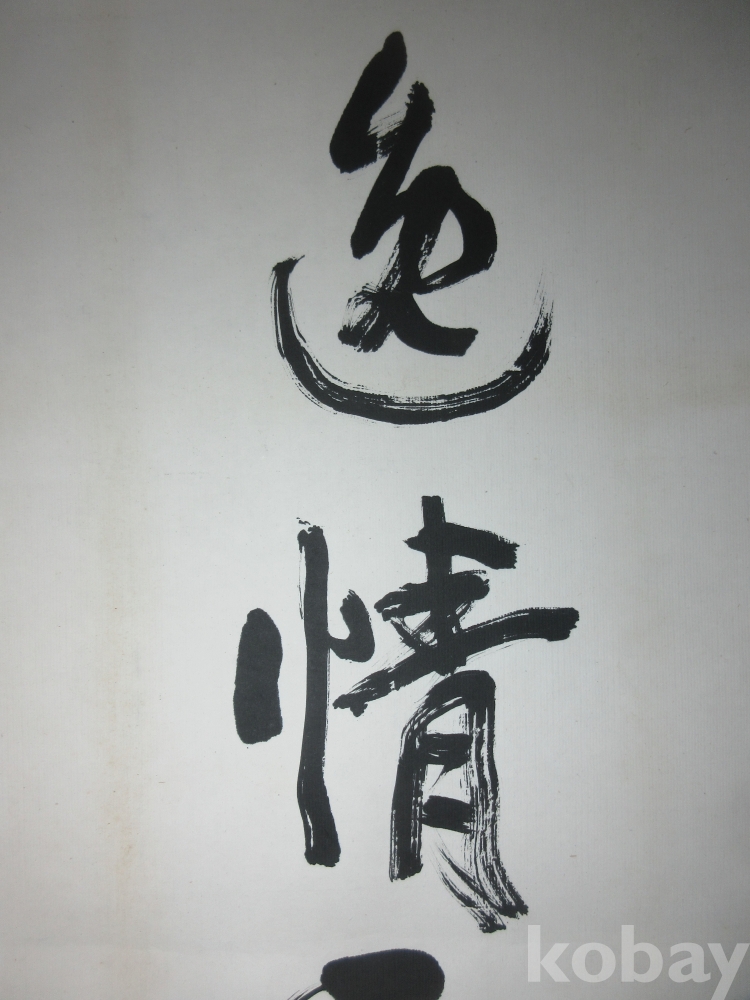 逸
情
kobay